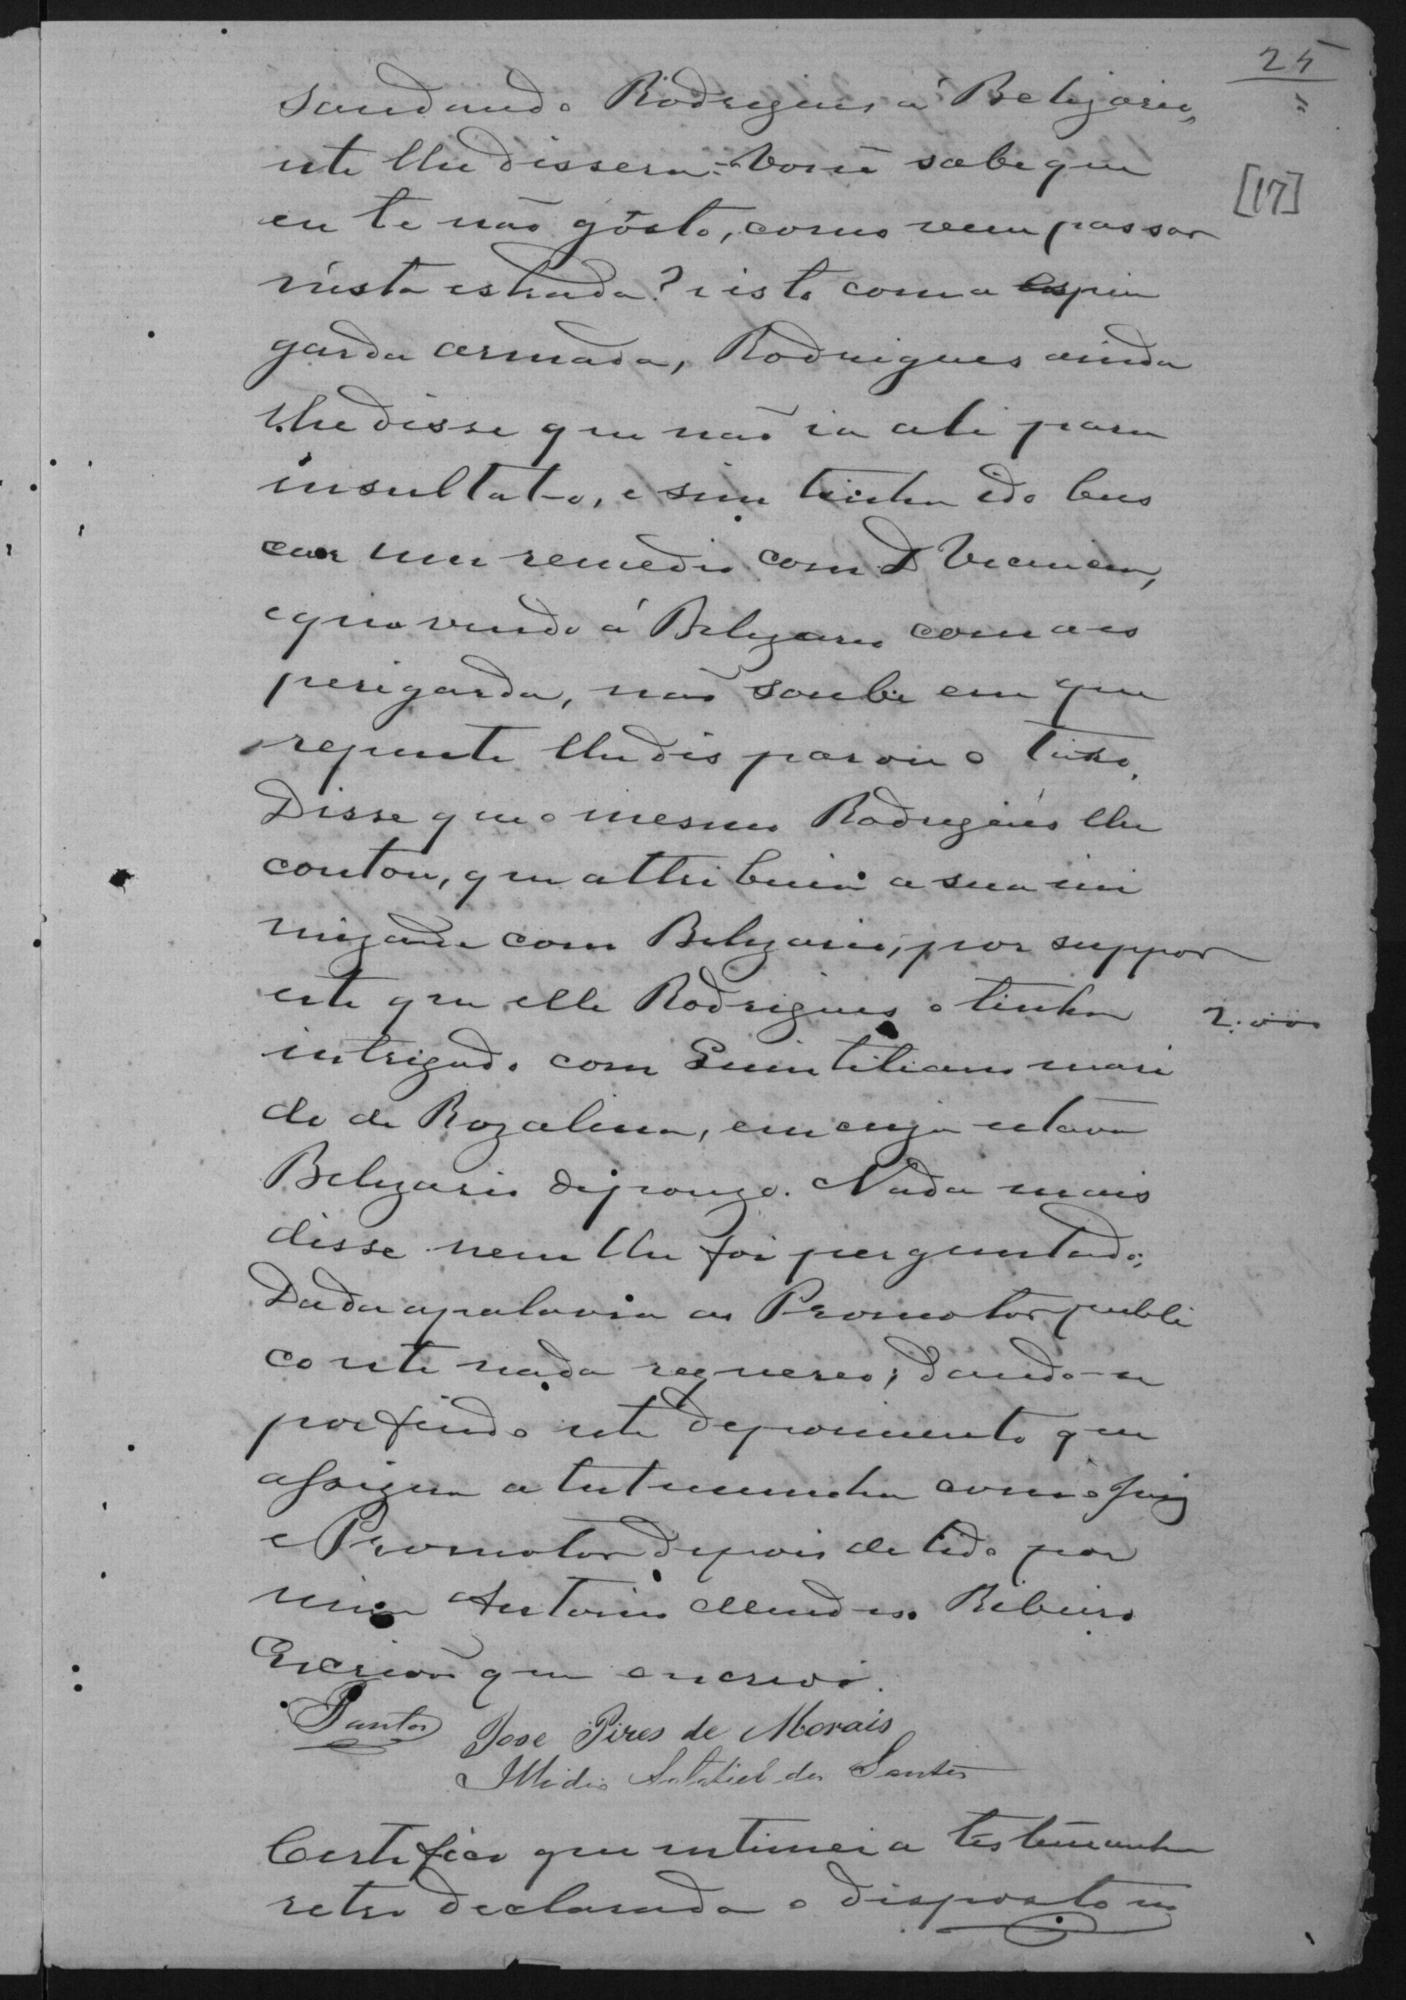 25
[17]
saudando Rodrigues á Belizario,
este lhe dissera = Você sabe que
eu te não gósto, como vem passar
n'esta estrada? e isto com a espin
garda armada, Rodrigues ainda
lhe disse que não ia ali para
insultal-o, e sim tinha ido bus
car um remedio com D
e que vendo á Belizario com a es
pingarda, não soube em que
repente lhe disparou o tiro.
Disse que o mesmo Rodrigues lhe
contou, que attribuia a sua ini
mizade com Belizario, por suppor
este que elle Rodrigues o tinha
2:000
intrigado com Quintiliano mari
do de Rozalina, em cuja estava
Belizario de pouzo. Nada mais
disse nem lhe foi perguntado;
Dada a palavra ao Promotor publi
co este nada requereo; dando-se
por findo este depoimento que
assigna a testemunha com o Juiz
e Promotor depois de lido por
mim Antonio Mendes Ribeiro
Escrivão que escrevi.
Santos Jose Pires de Morais
Salatiel dos Santos
Certifico que intimei a testemunha
retro declarada o disposto no